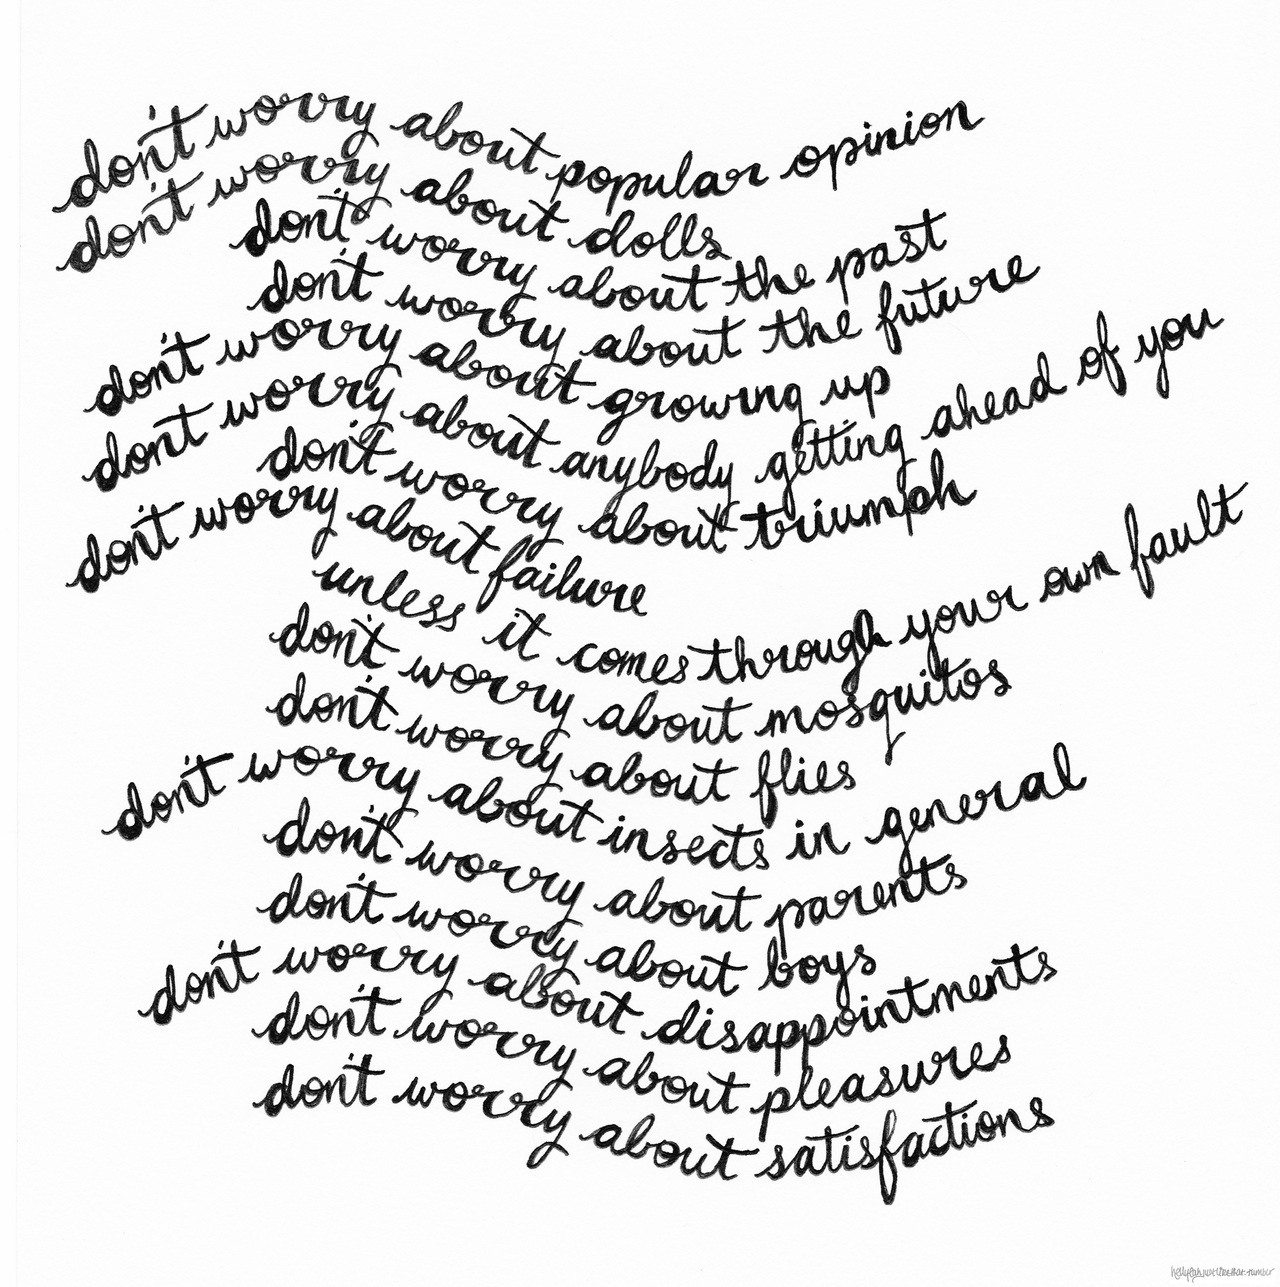 don't worry about popular opinion
don't worry about dolls
don't worry about the past
don't worry about the future
don't worry about growing up
don't worry about anybody getting ahead of you
don't worry about triumph
don't worry about failure
unless it comes through your own fault
don't worry about mosquitos
don't worry about flies
don't worry about insects in general
don't worry about parents
don't worry about boys
don't worry about disappointments
don't worry about pleasures
don't worry about satisfactions